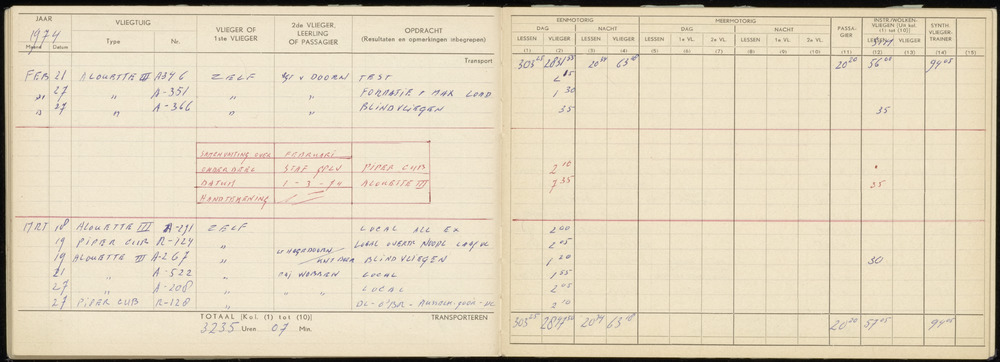 JAAR
1974
Maand Datum
VLIEGTUIG
Type Nr.
VLIEGER OF
1ste VLIEGER
2de VLIEGER,
LEERLING
OF PASSAGIER
OPDRACHT
(Resultaten en opmerkingen inbegrepen)
Transport
FEB 21 ALOUETTE III A-346 ZELF v DOORN TEST
" 27 " A-351 " FORMATIE + MAX LOAD
" 27 " A-366 " BLINDVLIEGEN
SAMENVATTING OVER FEBRUARI
ONDERDEEL STAF GPLV PIPER CUB
DATUM 1-3-74 ALOUETTE III
HANDTEKENING
MRT 18 ALOUETTE III A-291 ZELF LOCAL ALL EX
19 PIPER CUB R-124 " LOCAL
19 ALOUETTE III A-267 " BLINDVLIEGEN
21 " A-522 " LOCAL
27 " A-208 " LOCAL
27 PIPER CUB R-128 "
TOTAAL [Kol. (1) tot (10)]
3235 Uren 07 Min.
TRANSPORTEREN
EENMOTORIG
DAG NACHT
LESSEN VLIEGER LESSEN VLIEGER
(1) (2) (3) (4)
MEERMOTORIG
DAG NACHT
LESSEN 1e VL. 2e VL. LESSEN 1e VL. 2e VL.
(5) (6) (7) (8) (9) (10)
PASSA-
GIER
(11)
INSTR./WOLKEN-
VLIEGEN [Uit kol.
(1) tot (10)]
LESSEN VLIEGER
(12) (13)
SYNTH.
VLIEGER-
TRAINER
(14) (15)
303 25 2831 55 20 44 63 18 20 20 56 05 94 05
2 15
1 30
35 35
2 10
7 35 35
2 00
2 05
1 20 30
1 55
2 05
2 10
303 25 63 18 20 20 57 05 94 05